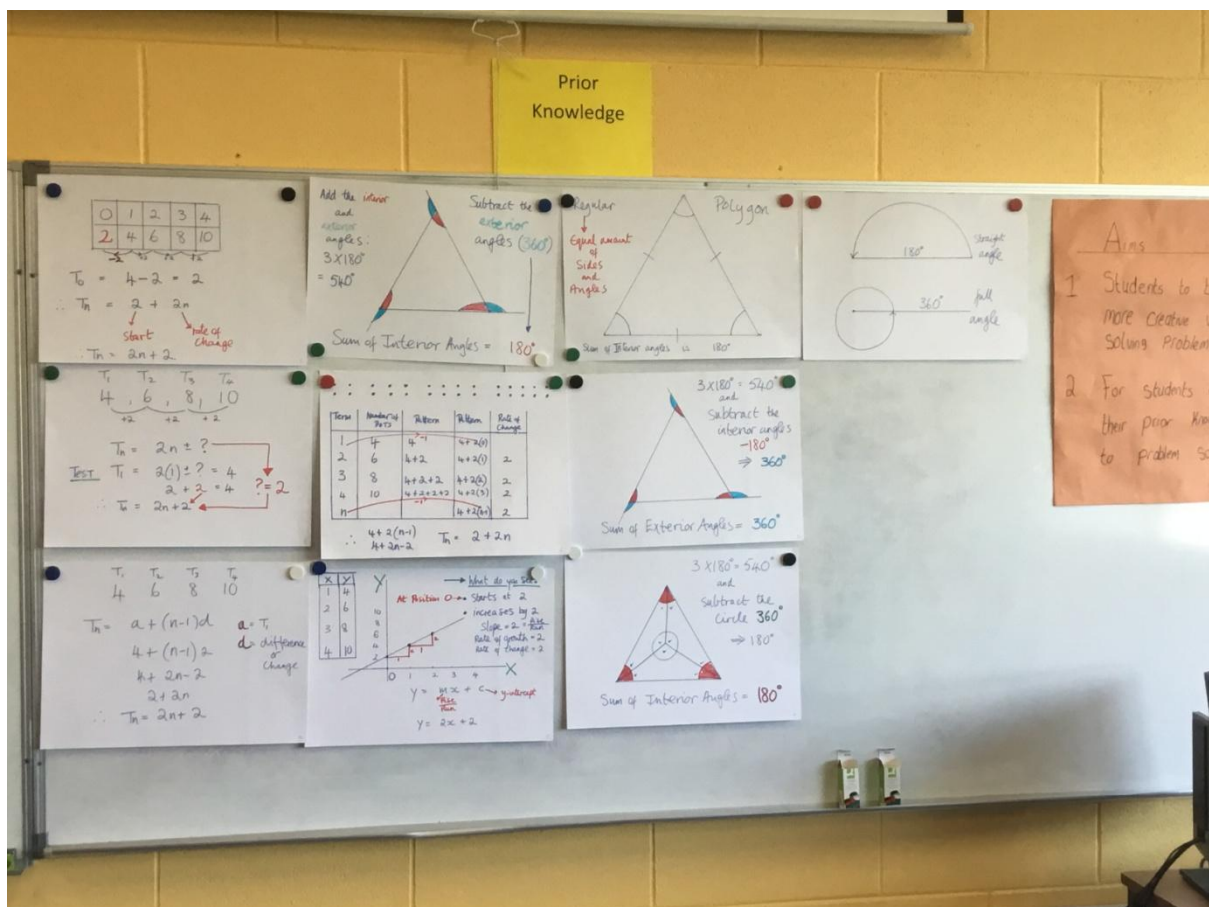 Prior
Knowledge
0 1 2 3 4
2 4 6 8 10
T₀ = 4-2 = 2
∴ Tn = 2 + 2n
Start
rate of
change
∴ Tn = 2n+2
Add the interior
and
exterior
angles:
3X180°
= 540°
Subtract the
exterior
angles (360°)
Sum of Interior Angles = 180°
Regular
Equal amount
of
Sides
and
Angles
Polygon
Sum of Interior angles is 180°
180°
Straight
angle
360°
full
angle
Aims
1 Students to
more creative
Solving Problem
2 For students
their prior
to problem
T₁ T₂ T₃ T₄
4, 6, 8, 10
+2 +2 +2
Tn = 2n ± ?
TEST T₁ = 2(1) ± ? = 4
2 + 2 = 4
? = 2
∴ Tn = 2n+2
Term Number of Dots Pattern Pattern Rate of Change
1 4 4 -1 4+2(0)
2 6 4+2 4+2(1) 2
3 8 4+2+2 4+2(2) 2
4 10 4+2+2+2 4+2(3) 2
n -1 4+2(n-1) 2
∴ 4+2(n-1)
4+2n-2
Tn = 2+2n
3X180° = 540°
and
Subtract the
interior angles
-180°
⇒ 360°
Sum of Exterior Angles = 360°
T₁ T₂ T₃ T₄
4 6 8 10
Tn = a + (n-1)d
a = T₁
d = difference
or
Change
4 + (n-1)2
4 + 2n-2
2+2n
∴ Tn = 2n+2
x y
1 4
2 6
3 8
4 10
Y
→ What do you see
At Position 0 → • Starts at 2
• increases by 2
Slope = 2 = Rise/Run
Rate of growth = 2
Rate of change = 2
10
8
6
4
2
0 1 2 3 4
X
y = mx + c → y-intercept
Rise
Run
y = 2x+2
3X180° = 540°
and
Subtract the
circle 360°
⇒ 180°
Sum of Interior Angles = 180°